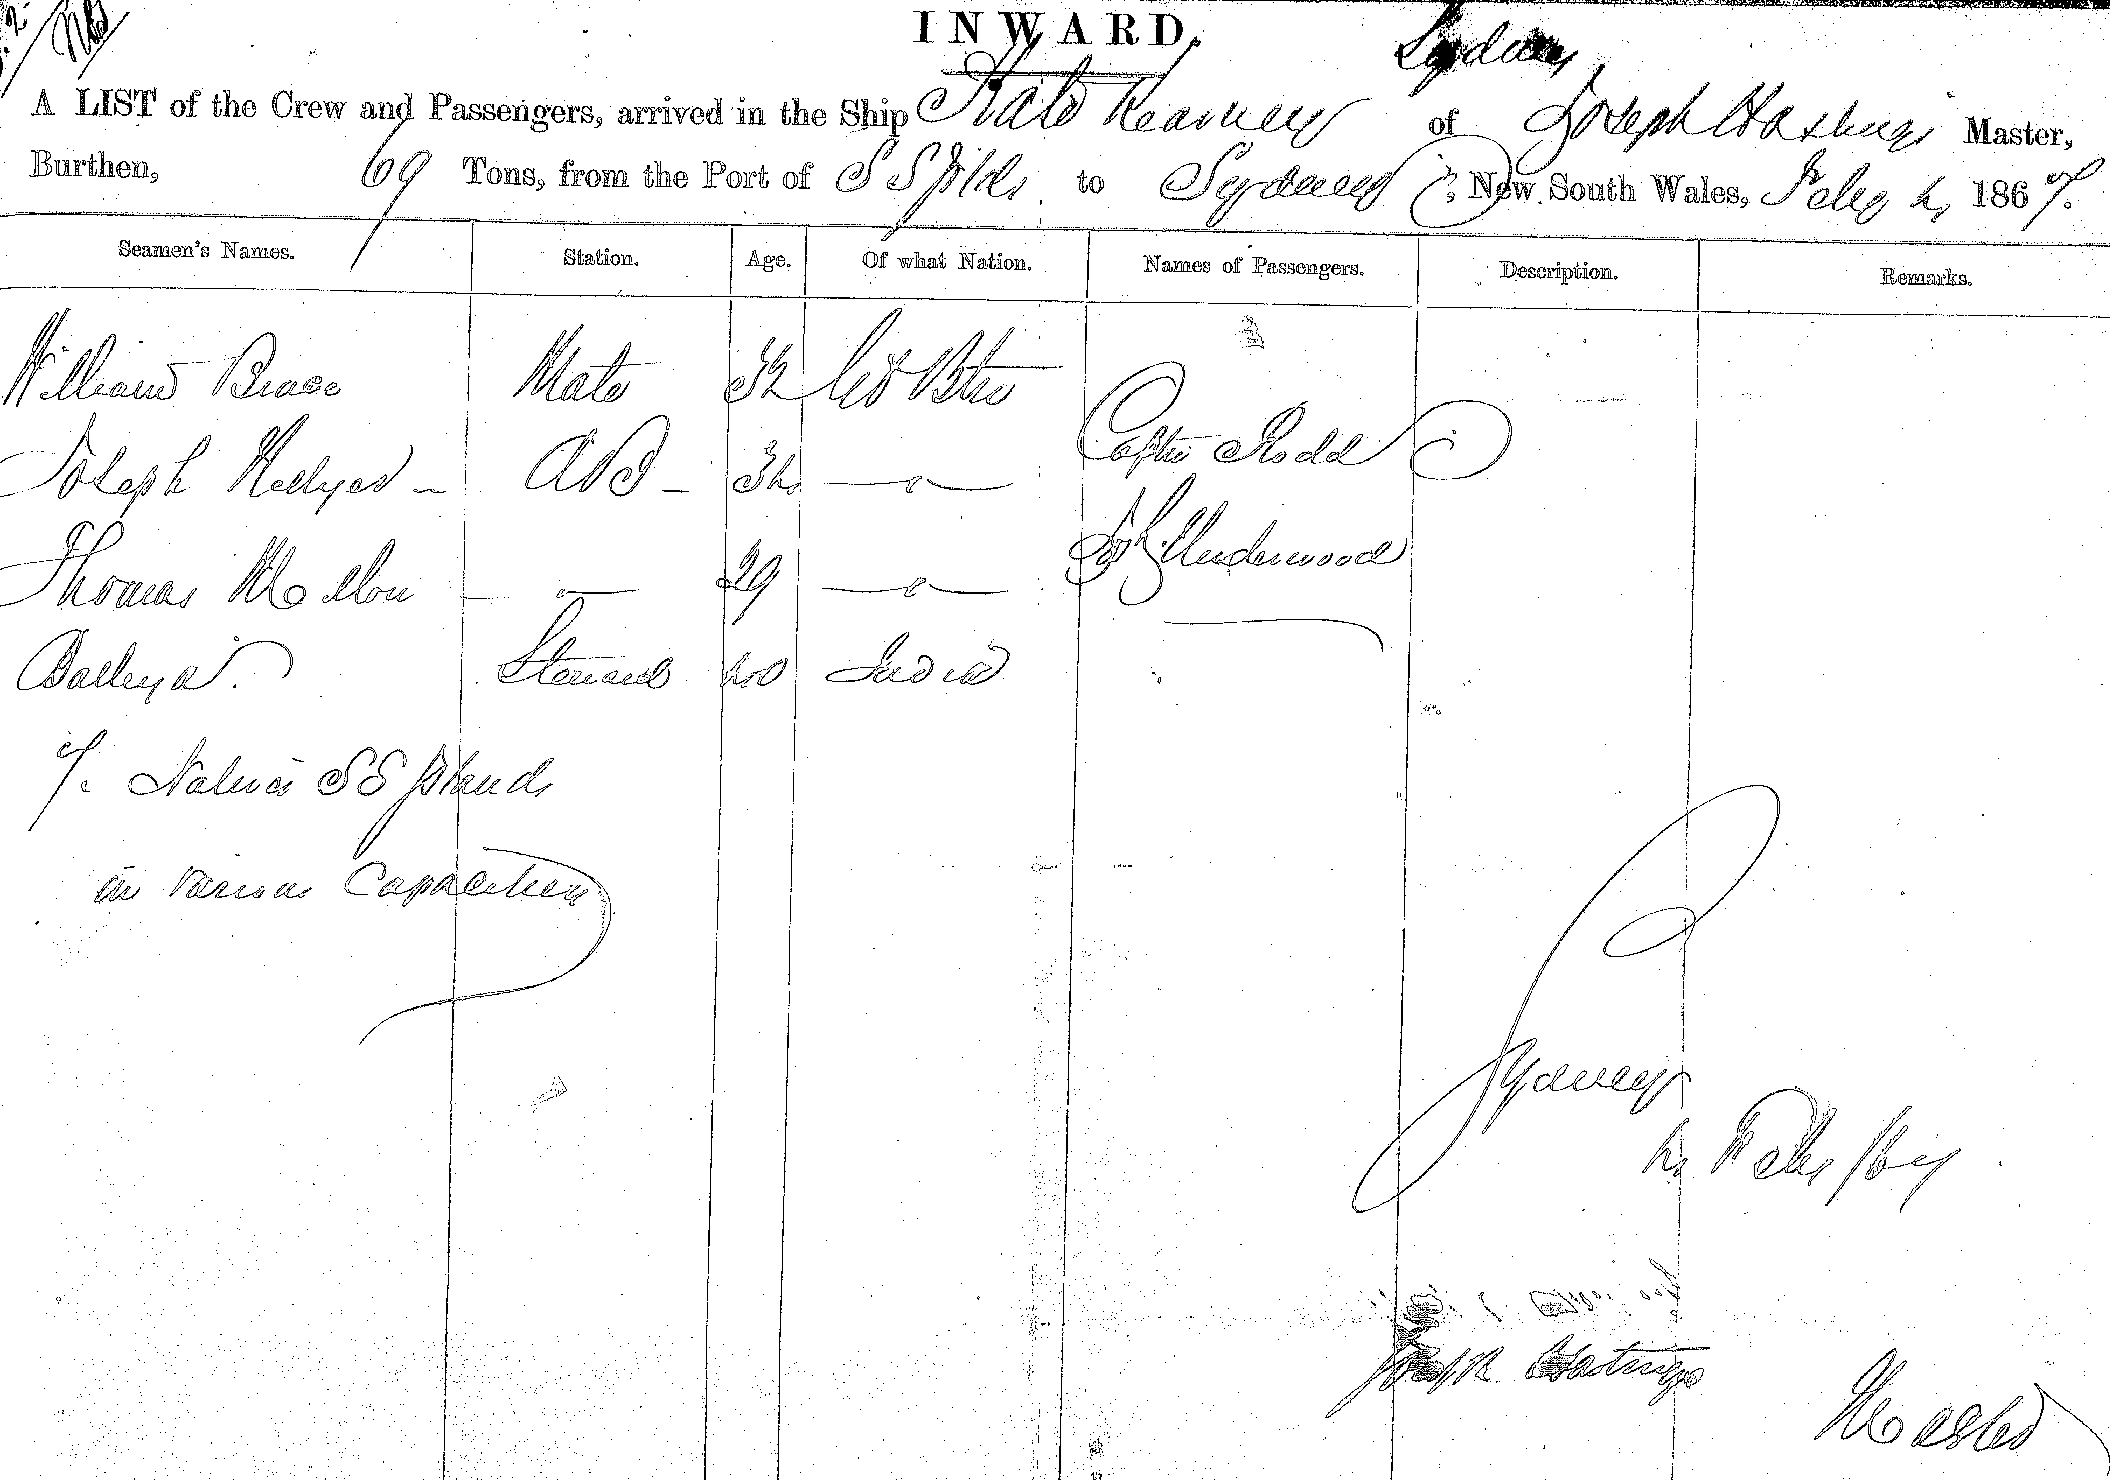 INWARD.
Sydney
A LIST of the Crew and Passengers, arrived in the Ship Kate Kearney of Joseph Hastings Master,
Burthen, 69 Tons, from the Port of S S Islds to Sydney, New South Wales, Feby 4, 1867.
Seamen's Names. Station. Age. Of what Nation. Names of Passengers. Description. Remarks.
William Brace Mate 32 Gt Btn
Captn Rodd
Joseph Hellyer - AB - 34 - " -
Underwood
Thomas - " - 29 - " -
Steward 40 India
7. Natives S S Islands
in various Capacities
Sydney
4 Feby /67
Joseph Hastings
Master